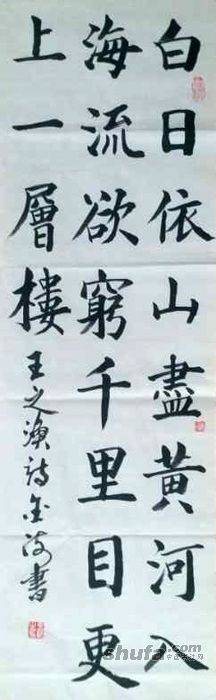 白日依山盡黃河入
海流欲窮千里目更
上一層樓
王之渙詩金海書